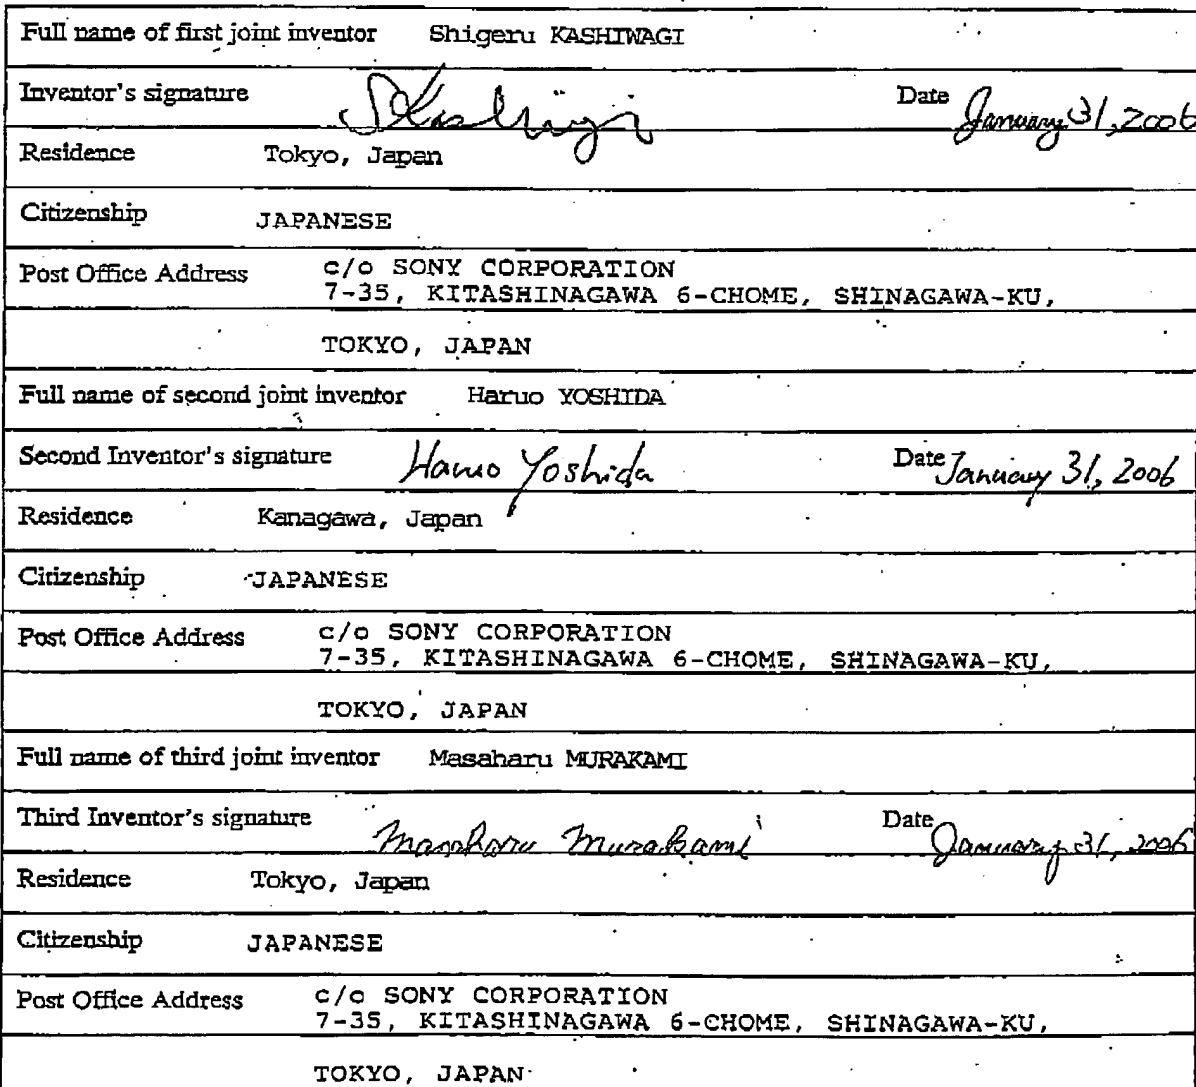 Full name of first joint inventor Shigeru KASHIWAGI
Inventor's signature SKashiwagi Date January 31, 2006
Residence Tokyo, Japan
Citizenship JAPANESE
Post Office Address c/o SONY CORPORATION
7-35, KITASHINAGAWA 6-CHOME, SHINAGAWA-KU,
TOKYO, JAPAN
Full name of second joint inventor Haruo YOSHIDA
Second Inventor's signature Haruo Yoshida Date January 31, 2006
Residence Kanagawa, Japan
Citizenship JAPANESE
Post Office Address c/o SONY CORPORATION
7-35, KITASHINAGAWA 6-CHOME, SHINAGAWA-KU,
TOKYO, JAPAN
Full name of third joint inventor Masaharu MURAKAMI
Third Inventor's signature Masaharu Murakami Date January 31, 2006
Residence Tokyo, Japan
Citizenship JAPANESE
Post Office Address c/o SONY CORPORATION
7-35, KITASHINAGAWA 6-CHOME, SHINAGAWA-KU,
TOKYO, JAPAN